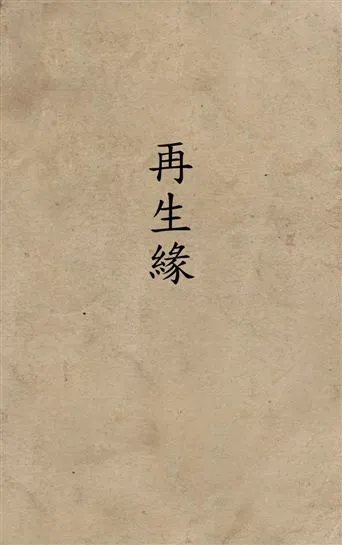 再生緣